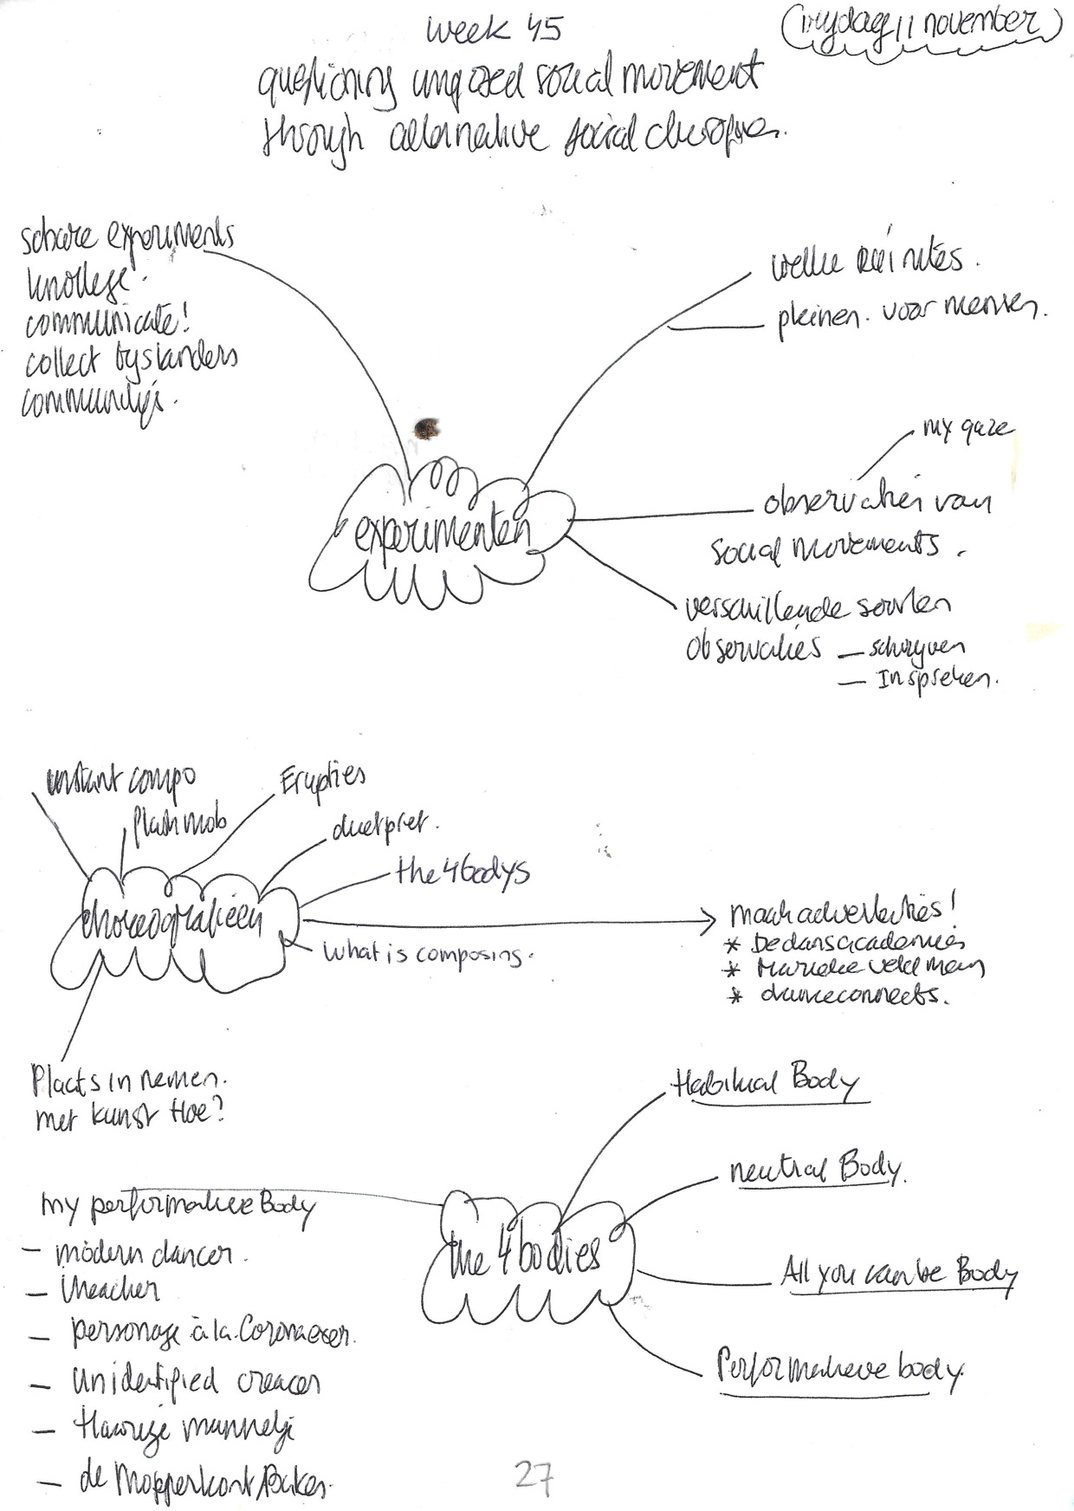 week 45
(vrijdag 11 november)
questioning unposed social movement
through alternative social
share experiments
communicate!
collect bystanders
welke ruimtes.
pleinen. voor mensen.
my gaze
experimenten
observaties van
social movements.
verschillende soorten
observaties — schrijven
— Inspreken.
instant compo
Erupties
flashmob
duetpret.
the 4 bodys
choreografieën
maak advertenties!
What is composing.
* De dansacademies
* Marieke Veldman
* danceconnects.
Plaats in nemen.
met kunst Hoe?
Habitual Body
neutral Body.
my performative Body
the 4 bodies
- modern dancer.
All you can be Body
- theacher
- personage à la
Performatieve body.
- Unidentified
- Harige mannetje
- de Mopperkont
27